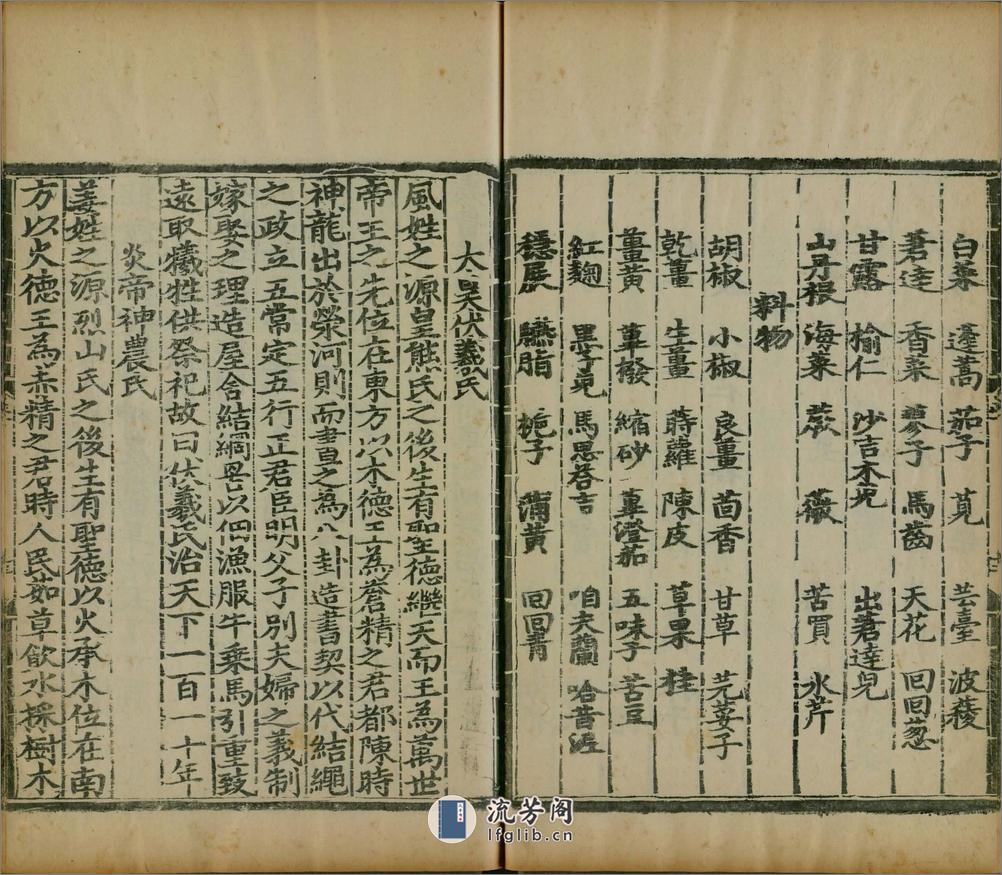 白菜 蓬蒿 茄子 莧 芸臺 波薐
莙薘 香菜 蓼子 馬齒 天花 回回葱
甘露 榆仁 沙吉木兒 出莙薘兒
山丹根 海菜 蕨 薇 苦買 水芹
料物
胡椒 小椒 良薑 茴香 甘草 芫荽子
乾薑 生薑 蒔蘿 陳皮 草果 桂
薑黃 蓽撥 縮砂 蓽澄茄 五味子 苦豆
紅麴 黑子兒 馬思荅吉 咱夫蘭 哈昔泥
穩展 臙脂 梔子 蒲黃 回回青
太昊伏羲氏
風姓之源皇熊氏之後生有聖德繼天而王為萬世
帝王之先位在東方以木德王為蒼精之君都陳時
神龍出於滎河則而畫之為八卦造書契以代結繩
之政立五常定五行正君臣明父子別夫婦之義制
嫁娶之理造屋舍結網罟以佃漁服牛乗馬引重致
遠取犧牲供祭祀故曰伏羲氏治天下一百一十年
炎帝神農氏
姜姓之源烈山氏之後生有聖德以火承木位在南
方以火德王為赤精之君時人民茹草飲水採樹木
流芳阁
lfglib.cn